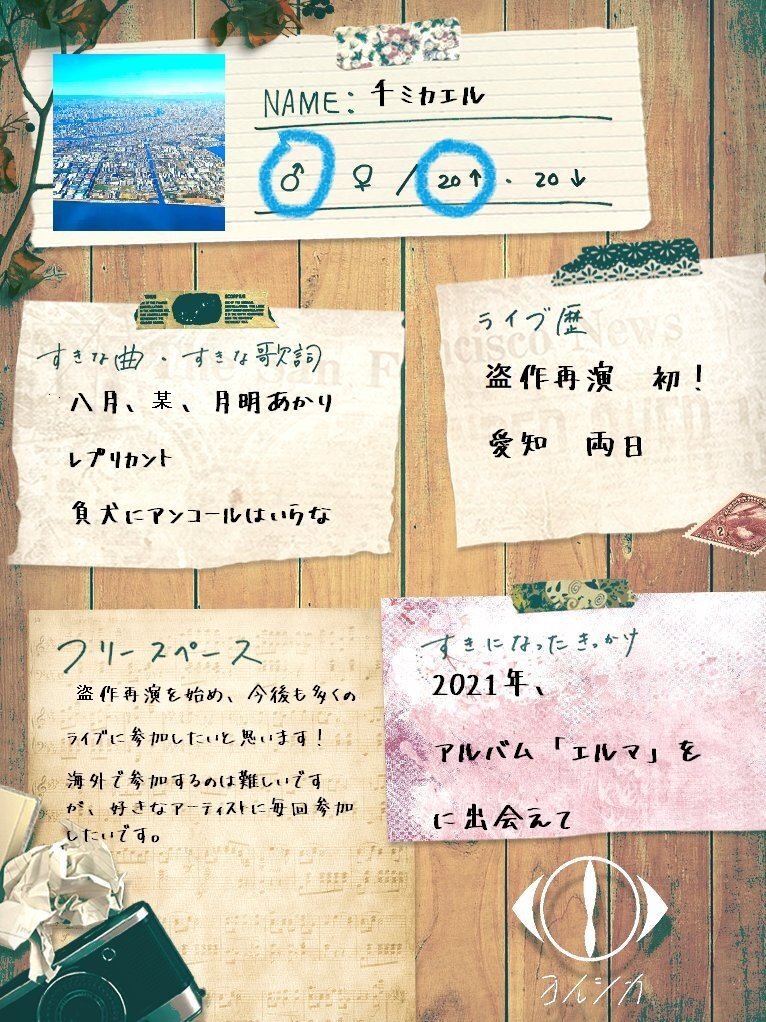 NAME: 千ミカエル
♂ ♀ / 20↑ ・ 20↓
すきな曲・すきな歌詞
八月、某、月明あかり
レプリカント
負犬にアンコールはいらな
ライブ歴
盗作再演 初！
愛知 両日
フリースペース
盗作再演を始め、今後も多くの
ライブに参加したいと思います！
海外で参加するのは難しいです
が、好きなアーティストに毎回参加
したいです。
すきになったきっかけ
2021年、
アルバム「エルマ」を
に出会えて
ヨルシカ